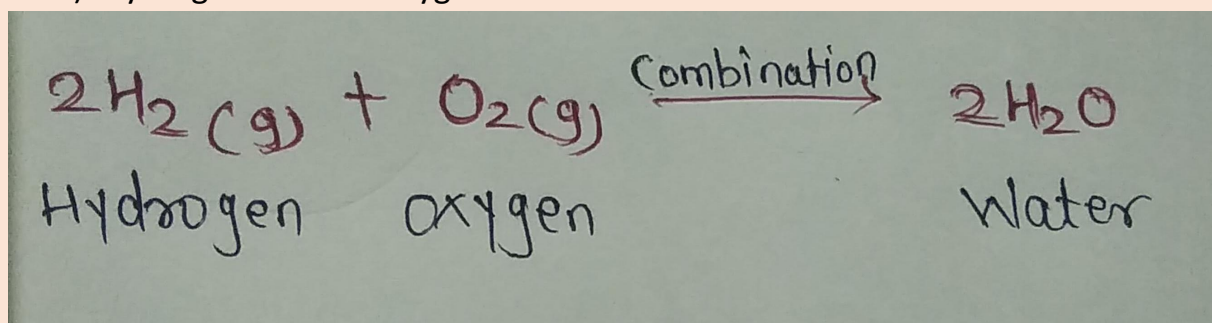 2H₂(g) + O₂(g) Combination → 2H₂O
Hydrogen oxygen Water